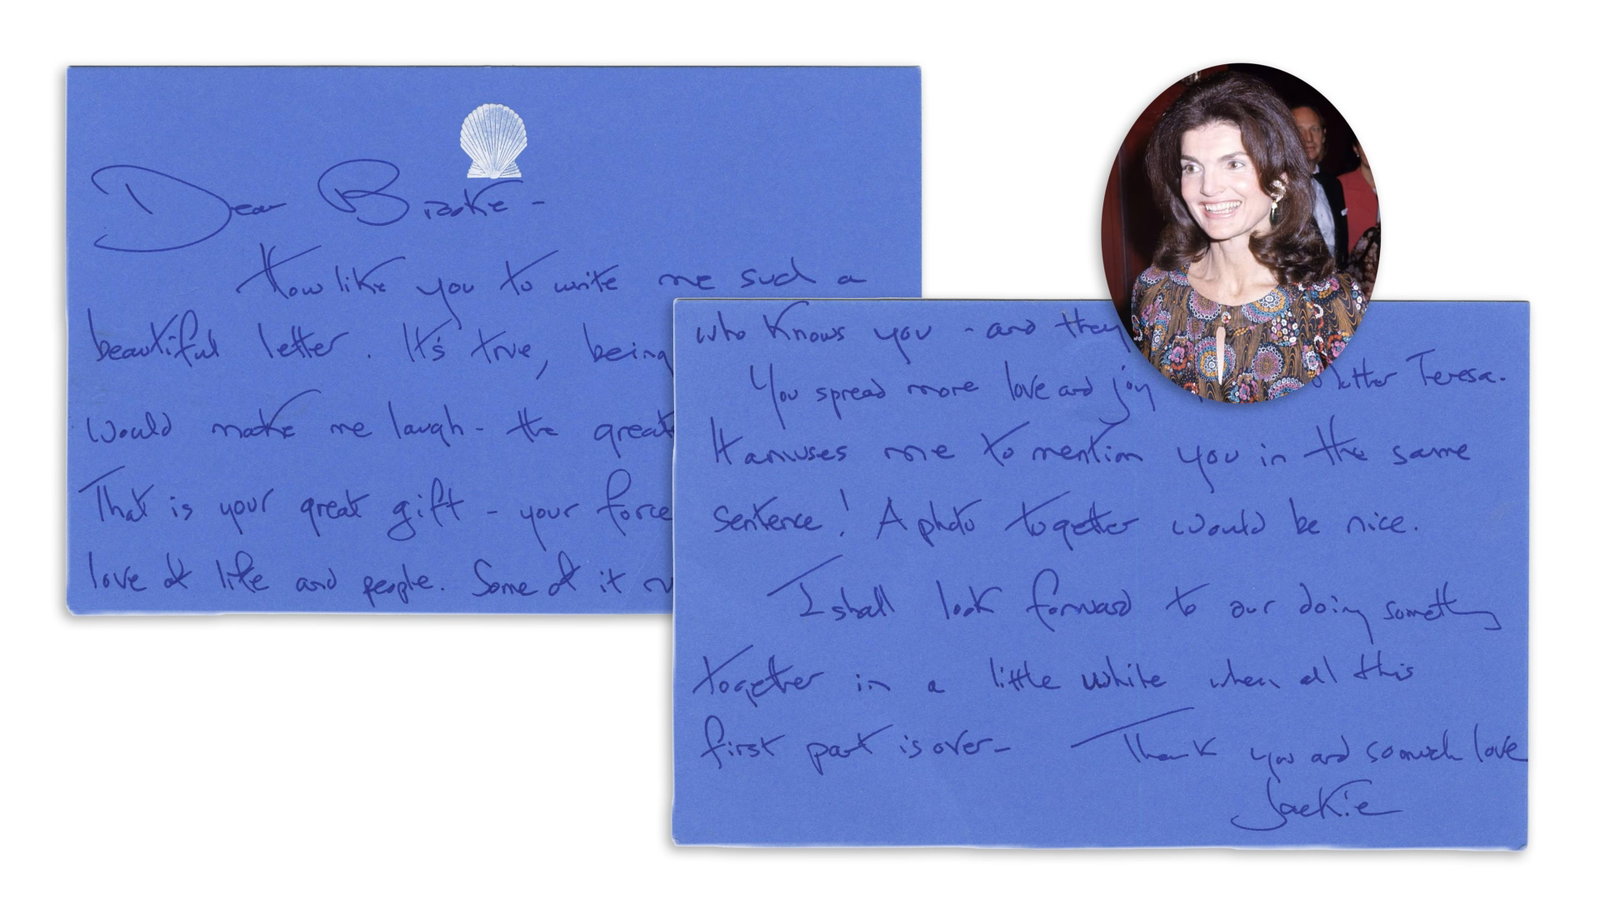 Dear Brooke -
How like you to write me such a
beautiful letter. It's true, being
would make me laugh - the great
That is your great gift - your force
love of life and people. Some of it
who knows you - and they
You spread more love and joy Mother Teresa.
It amuses me to mention you in the same
sentence! A photo together would be nice.
I shall look forward to our doing something
together in a little white when all this
first part is over -
Thank you and so much love
Jackie